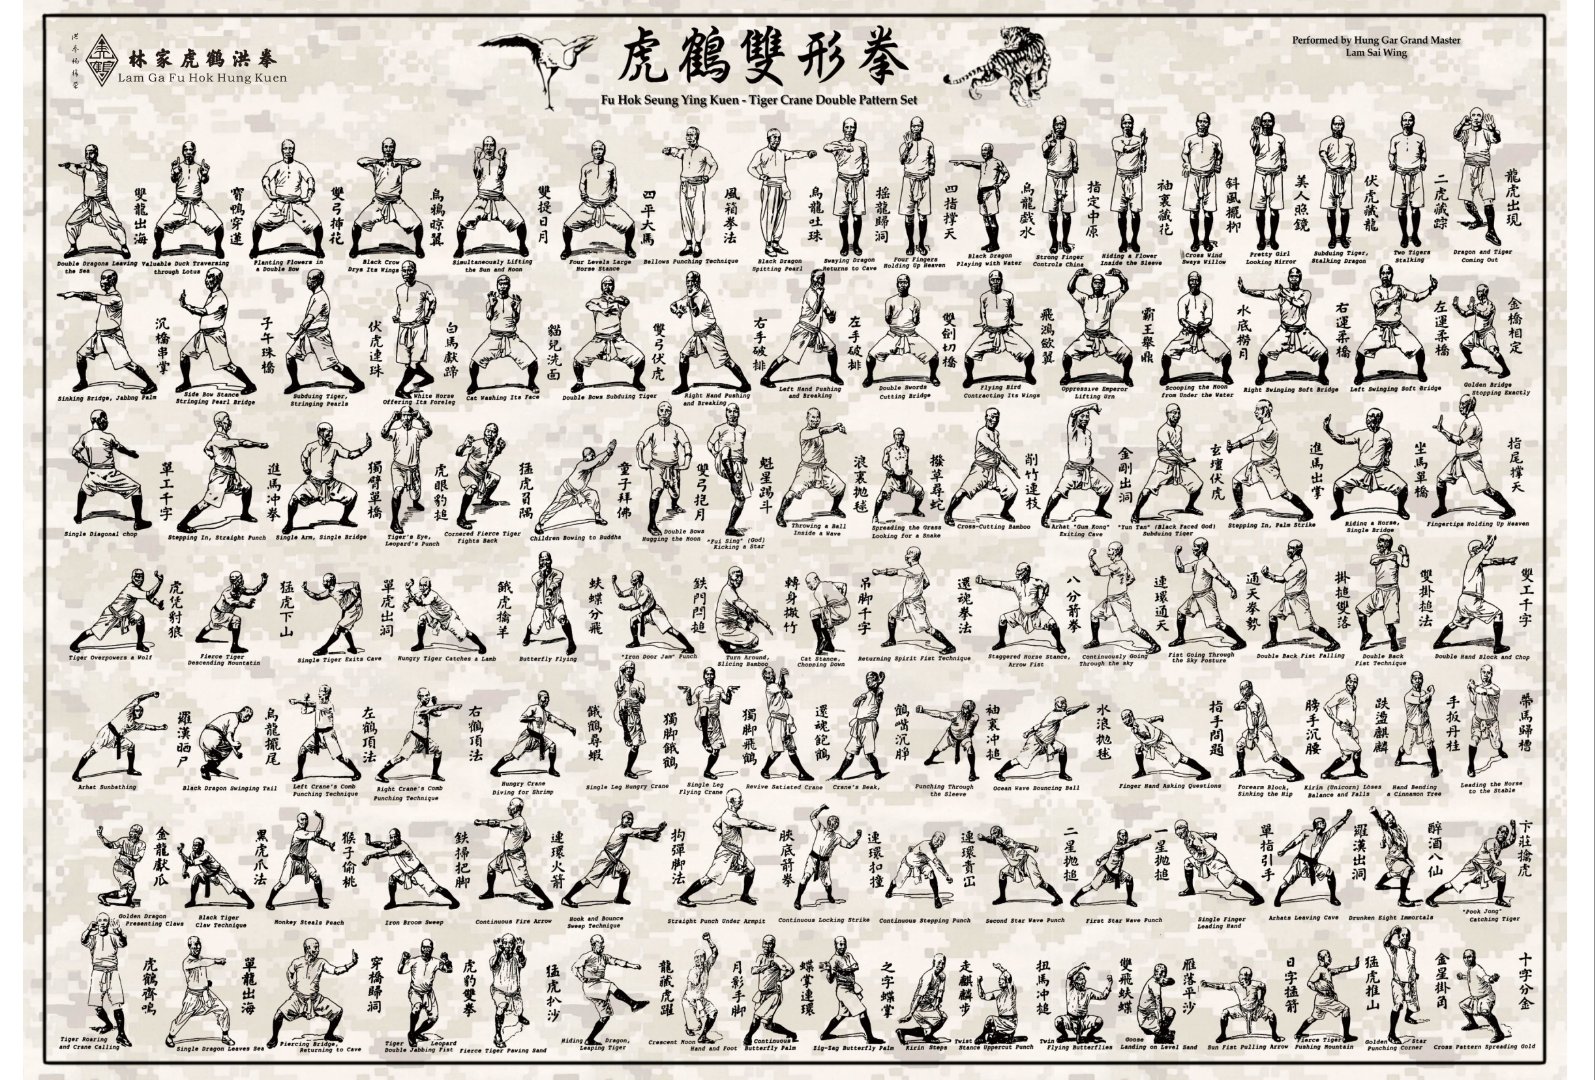 洪拳楊錦榮
林家虎鶴洪拳
Lam Ga Fu Hok Hung Kuen
虎鶴雙形拳
Fu Hok Seung Ying Kuen - Tiger Crane Double Pattern Set
Performed by Hung Gar Grand Master
Lam Sai Wing
雙龍出海
寶鴨穿蓮
雙弓插花
烏鴉晾翼
雙提日月
四平大馬
風箱拳法
烏龍吐珠
搖龍歸洞
四指撐天
烏龍戲水
指定中原
袖裏藏花
斜風擺柳
美人照鏡
伏虎藏龍
二虎藏踪
龍虎出現
Double Dragons Leaving the Sea
Valuable Duck Traversing through Lotus
Planting Flowers in a Double Bow
Black Crow Drys Its Wings
Simultaneously Lifting the Sun and Moon
Four Levels Large Horse Stance
Bellows Punching Technique
Black Dragon Spitting Pearl
Swaying Dragon Returns to Cave
Four Fingers Holding Up Heaven
Black Dragon Playing with Water
Strong Finger Controls China
Hiding a Flower Inside the Sleeve
Cross Wind Sways Willow
Pretty Girl Looking Mirror
Subduing Tiger, Stalking Dragon
Two Tigers Stalking
Dragon and Tiger Coming Out
沉橋串掌
子午珠橋
伏虎連珠
白馬獻蹄
貓兒洗面
雙弓伏虎
右手破排
左手破排
雙劍切橋
飛鴻歛翼
霸王舉鼎
水底撈月
右運柔橋
左運柔橋
金橋相定
Sinking Bridge, Jabbng Palm
Side Bow Stance Stringing Pearl Bridge
Subduing Tiger, Stringing Pearls
White Horse Offering Its Foreleg
Cat Washing Its Face
Double Bows Subduing Tiger
Right Hand Pushing and Breaking
Left Hand Pushing and Breaking
Double Swords Cutting Bridge
Flying Bird Contracting Its Wings
Oppressive Emperor Lifting Urn
Scooping the Moon from Under the Water
Right Swinging Soft Bridge
Left Swinging Soft Bridge
Golden Bridge Stopping Exactly
單工千字
進馬冲拳
獨臂單橋
虎眼豹搥
猛虎負隅
童子拜佛
雙弓抱月
魁星踢斗
浪裏拋毬
撥草尋蛇
削竹連枝
金剛出洞
玄壇伏虎
進馬出掌
坐馬單橋
指尾撐天
Single Diagonal chop
Stepping In, Straight Punch
Single Arm, Single Bridge
Tiger's Eye, Leopard's Punch
Cornered Fierce Tiger Fights Back
Children Bowing to Buddha
Double Bows Hugging the Moon
"Fui Sing" (God) Kicking a Star
Throwing a Ball Inside a Wave
Spreading the Grass Looking for a Snake
Cross-Cutting Bamboo
Arhat "Gum Kong" Exiting Cave
"Yun Tan" (Black Faced God) Subduing Tiger
Stepping In, Palm Strike
Riding a Horse, Single Bridge
Fingertips Holding Up Heaven
虎凭豺狼
猛虎下山
單虎出洞
餓虎擒羊
蚨蝶分飛
鉄門閂搥
轉身撇竹
吊脚千字
還魂拳法
八分箭拳
連環通天
通天拳勢
掛搥雙落
雙掛搥法
雙工千字
Tiger Overpowers a Wolf
Fierce Tiger Descending Mountatin
Single Tiger Exits Cave
Hungry Tiger Catches a Lamb
Butterfly Flying
"Iron Door Jam" Punch
Turn Around, Slicing Bamboo
Cat Stance, Chopping Down
Returning Spirit Fist Technique
Staggered Horse Stance, Arrow Fist
Continuously Going Through the sky
Fist Going Through the Sky Posture
Double Back Fist Falling
Double Back Fist Technique
Double Hand Block and Chop
羅漢晒尸
烏龍擺尾
左鶴頂法
右鶴頂法
餓鶴尋蝦
獨脚餓鶴
獨脚飛鶴
還魂飽鶴
鶴嘴沉踭
袖裏冲搥
水浪拋毬
指手問題
膀手沉腰
跌盪麒麟
手扳丹桂
帶馬歸槽
Arhat Sunbathing
Black Dragon Swinging Tail
Left Crane's Comb Punching Technique
Right Crane's Comb Punching Technique
Hungry Crane Diving for Shrimp
Single Leg Hungry Crane
Single Leg Flying Crane
Revive Satiated Crane
Crane's Beak,
Punching Through the Sleeve
Ocean Wave Bouncing Ball
Finger Hand Asking Questions
Forearm Block, Sinking the Hip
Kirin (Unicorn) Loses Balance and Falls
Hand Bending a Cinnamon Tree
Leading the Horse to the Stable
金龍獻爪
黑虎爪法
猴子偷桃
鉄掃把脚
連環火箭
狗彈脚法
肷底箭拳
連環扣撞
二星拋搥
一星拋搥
單指引手
羅漢出洞
醉酒八仙
卞莊擒虎
Golden Dragon Presenting Claws
Black Tiger Claw Technique
Monkey Steals Peach
Iron Broom Sweep
Continuous Fire Arrow
Hook and Bounce Sweep Technique
Straight Punch Under Armpit
Continuous Locking Strike
Continuous Stepping Punch
Second Star Wave Punch
First Star Wave Punch
Single Finger Leading Hand
Arhats Leaving Cave
Drunken Eight Immortals
"Pook Jong" Catching Tiger
虎鶴齊鳴
單龍出海
穿橋歸洞
虎豹雙拳
猛虎扒沙
龍藏虎躍
月影手脚
蝶掌連環
之字蝶掌
走麒麟步
扭馬冲搥
雙飛蚨蝶
雁落平沙
日字猛箭
猛虎推山
金星掛角
十字分金
Tiger Roaring and Crane Calling
Single Dragon Leaves Sea
Piercing Bridge, Returning to Cave
Tiger Leopard Double Jabbing Fist
Fierce Tiger Pawing Sand
Hiding Dragon, Leaping Tiger
Crescent Moon Hand and Foot
Continuous Butterfly Palm
Zig-Zag Butterfly Palm
Kirin Steps
Twist Stance Uppercut Punch
Twin Flying Butterflies
Goose Landing on Level Sand
Sun Fist Pulling Arrow
Fierce Tiger Pushing Mountain
Golden Star Punching Corner
Cross Pattern Spreading Gold